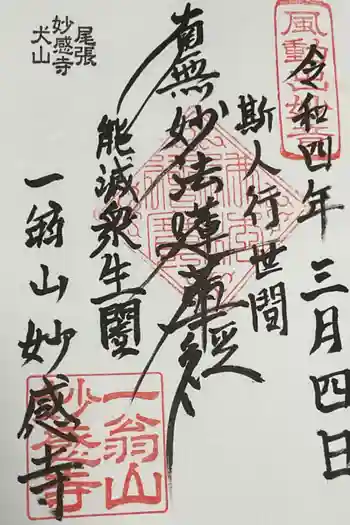 令和四年三月四日
斯人行世間
南無妙法蓮華経
能滅衆生闇
一翁山妙感寺
尾張
妙感寺
犬山
一翁山
妙感寺